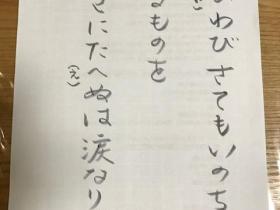 わび さてもいのち
るものを
きにたへぬは 涙なり
(え)